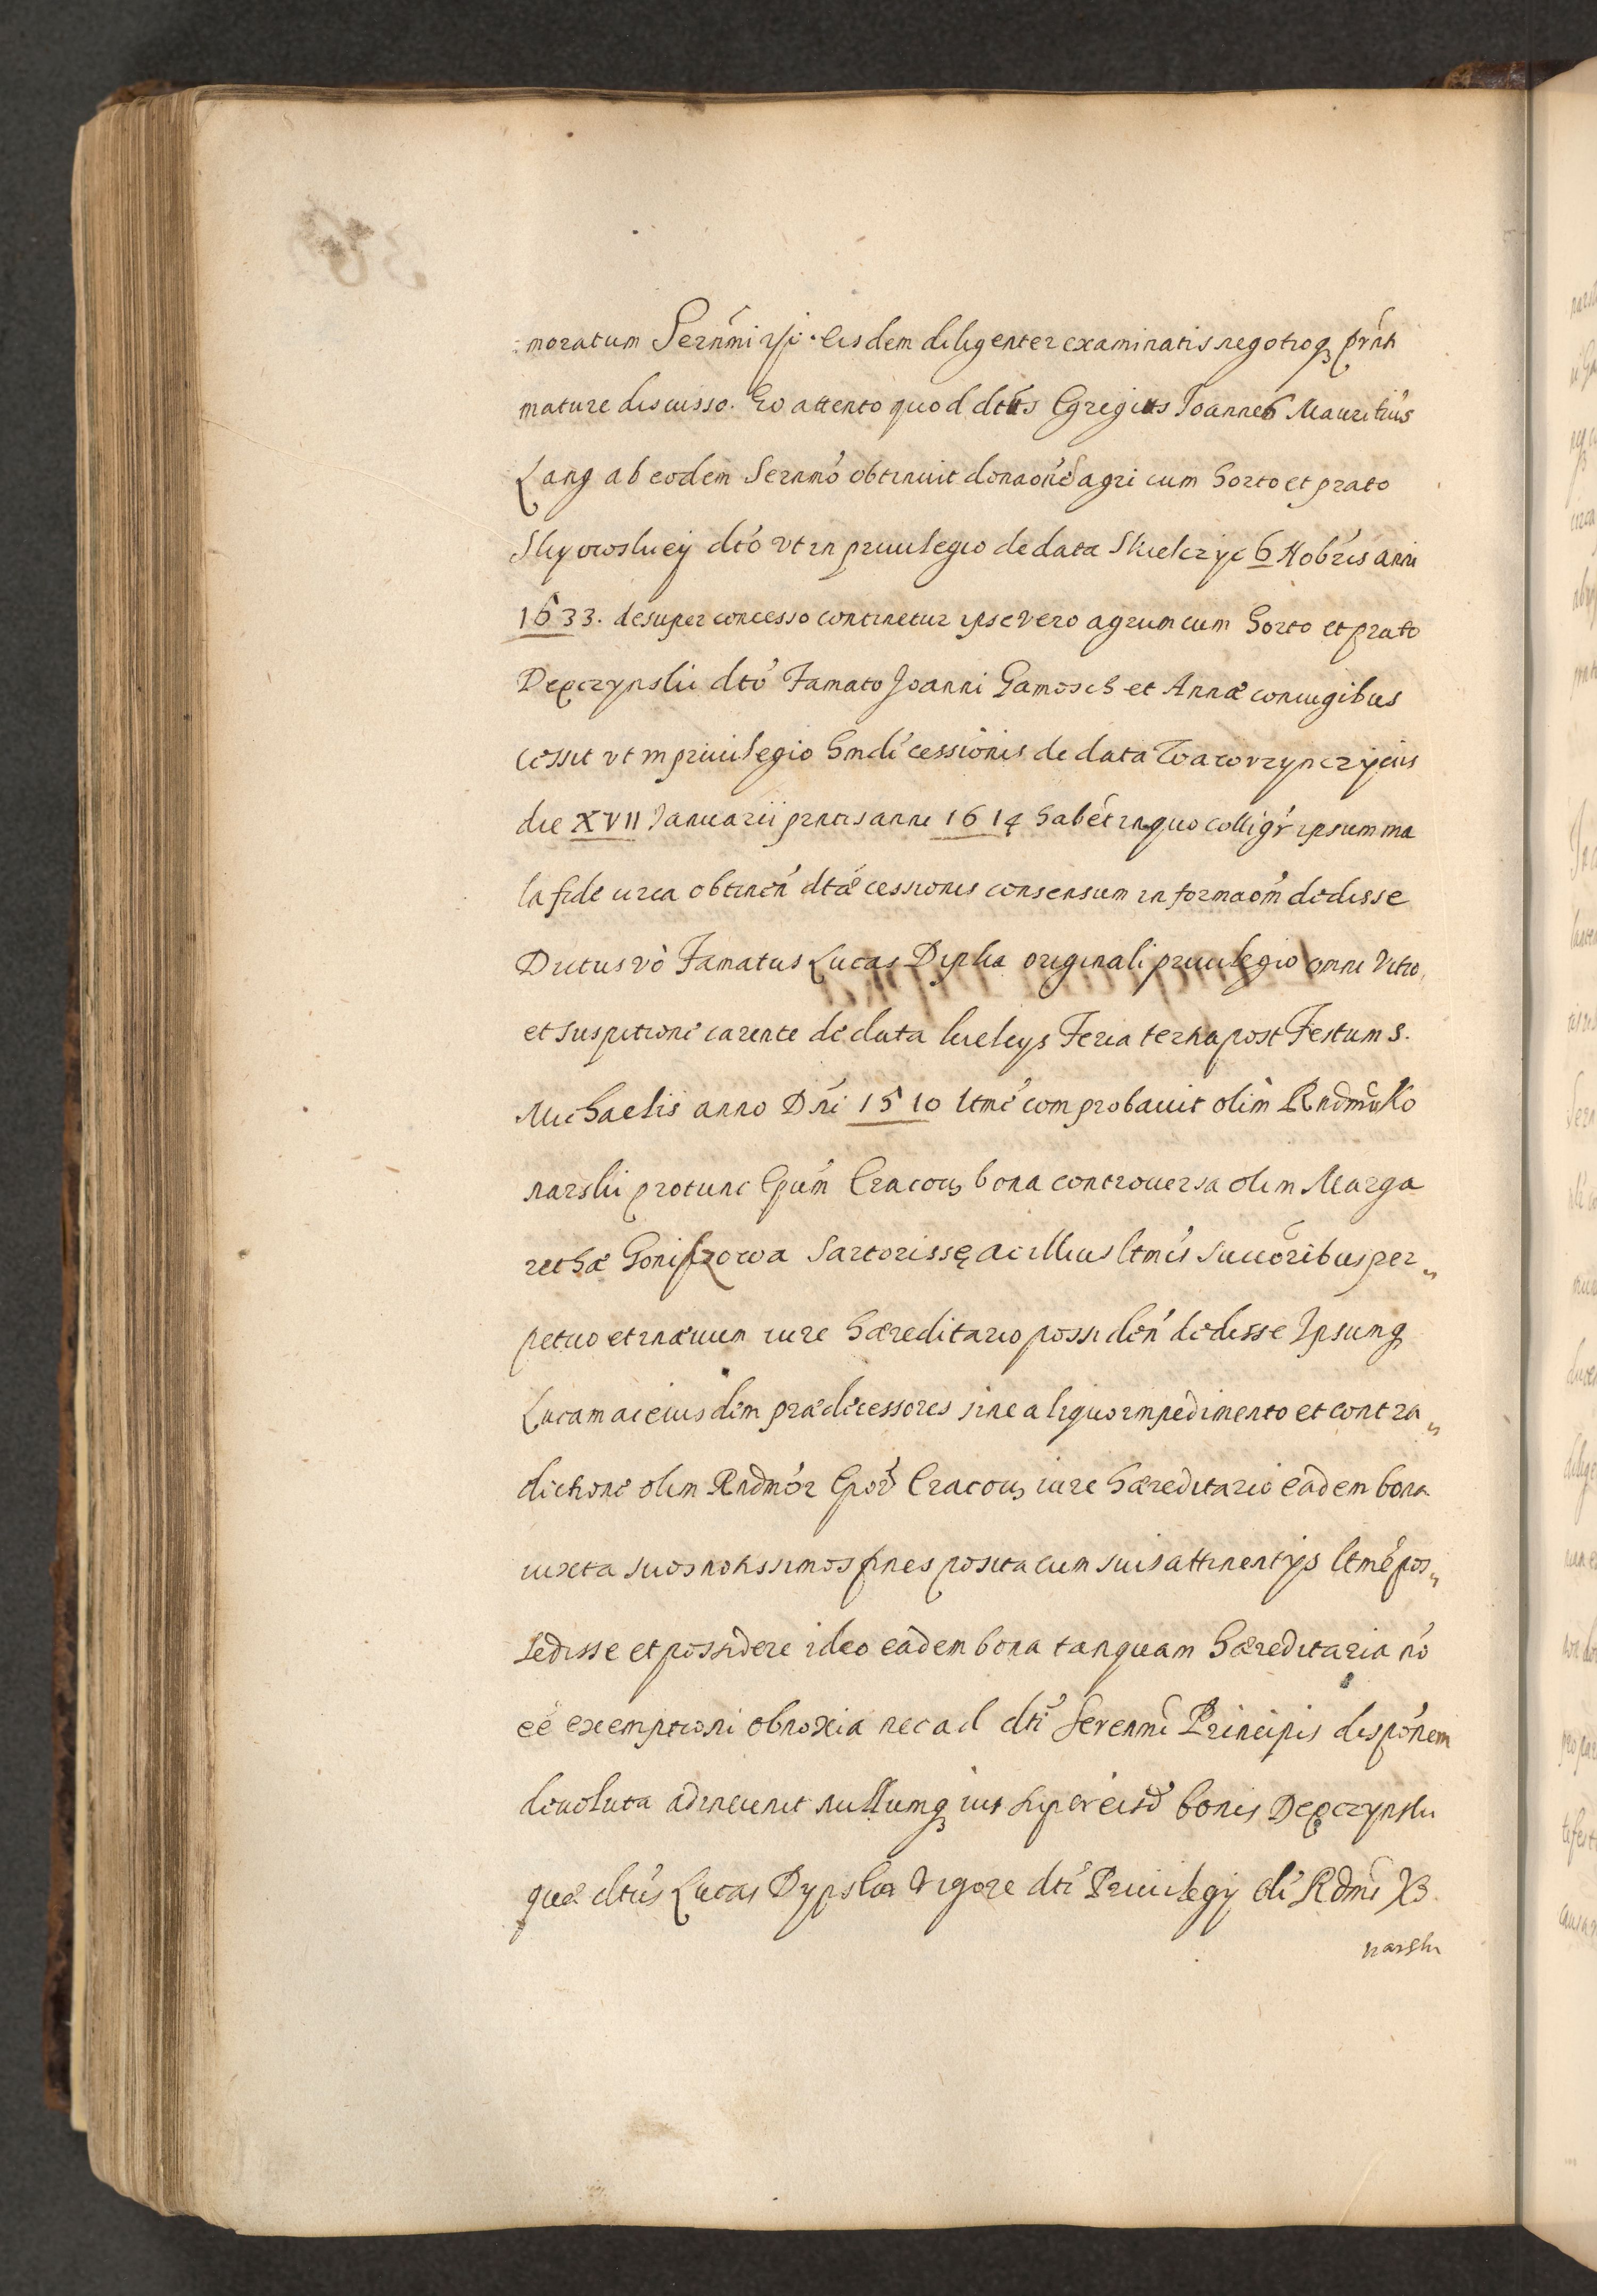 moratum Sernmi ipi eisdem diligenter examinatis negotioq prnti
mature discusso. Eo attento quod dtus Egregius Joannes Mauritius
Lang ab eodem Sernmo obtinuit donaone agri cum horto et prato
dto vt in priuilegio de data Skielczyc 6 Nobris anni
1633. desuper concesso continetur ipse vero agrum cum horto et prato
Depczynski dto Famato Joanni Gamosch et Annæ coniugibus
cessit vt in priuilegio hmdi cessionis de data
die XVII Januarii prntis anni 1614 habet in quo colligr ipsum ma
la fide circa obtinen dtæ cessionis consensum informaom dedisse
Dictus vo Famatus Lucas Dipka originali priuilegio omni vitio
et suspitione carente de data kielcys Feria tertia post Festum S.
Michaelis anno Dni 1510 ltme comprobauit olim Rndmu Ko
narski protunc Epum Cracou bona controuersa olim Marga
rethæ Goniszowa Sartorissę ac illius ltmis succoribus per„
petuo et in æuum iure hæreditario possiden dedisse Ipsumq
Lucam ac eiusdem prædecessores sine aliquo impedimento et contra„
dictione olim Rndmor Epor Cracou iure hæreditario eadem bona
iuxta suos notissimos fines posita cum suis attinentijs ltme pos„
sedisse et possidere ideo eadem bona tanquam hæreditaria no
eé exemptioni obnoxia nec ad dti Serenmi Principis disponem
deuoluta adinuenit nullumq ius super eisd bonis Depczynski
quæ dtus Lucas Dypka vigore dti Priuilegij oli Rdmi Ko
narski